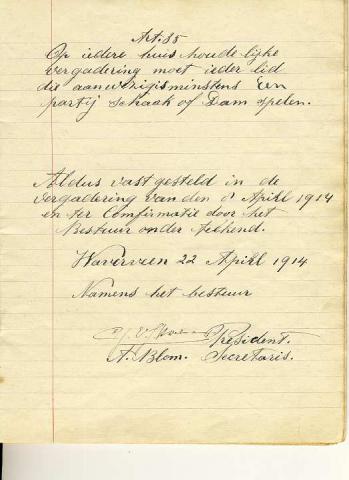 Art. 35
Op iedere huishoudelijke
vergadering moet ieder lid
die aanwezig is minstens Een
partij schaak of Dam spelen.
Aldus vast gesteld in de
vergadering van den 8 April 1914
en ter Comfirmatie door het
Bestuur onder teekend.
Waverveen 22 April 1914
Namens het bestuur
President.
A. Blom. Secretaris.